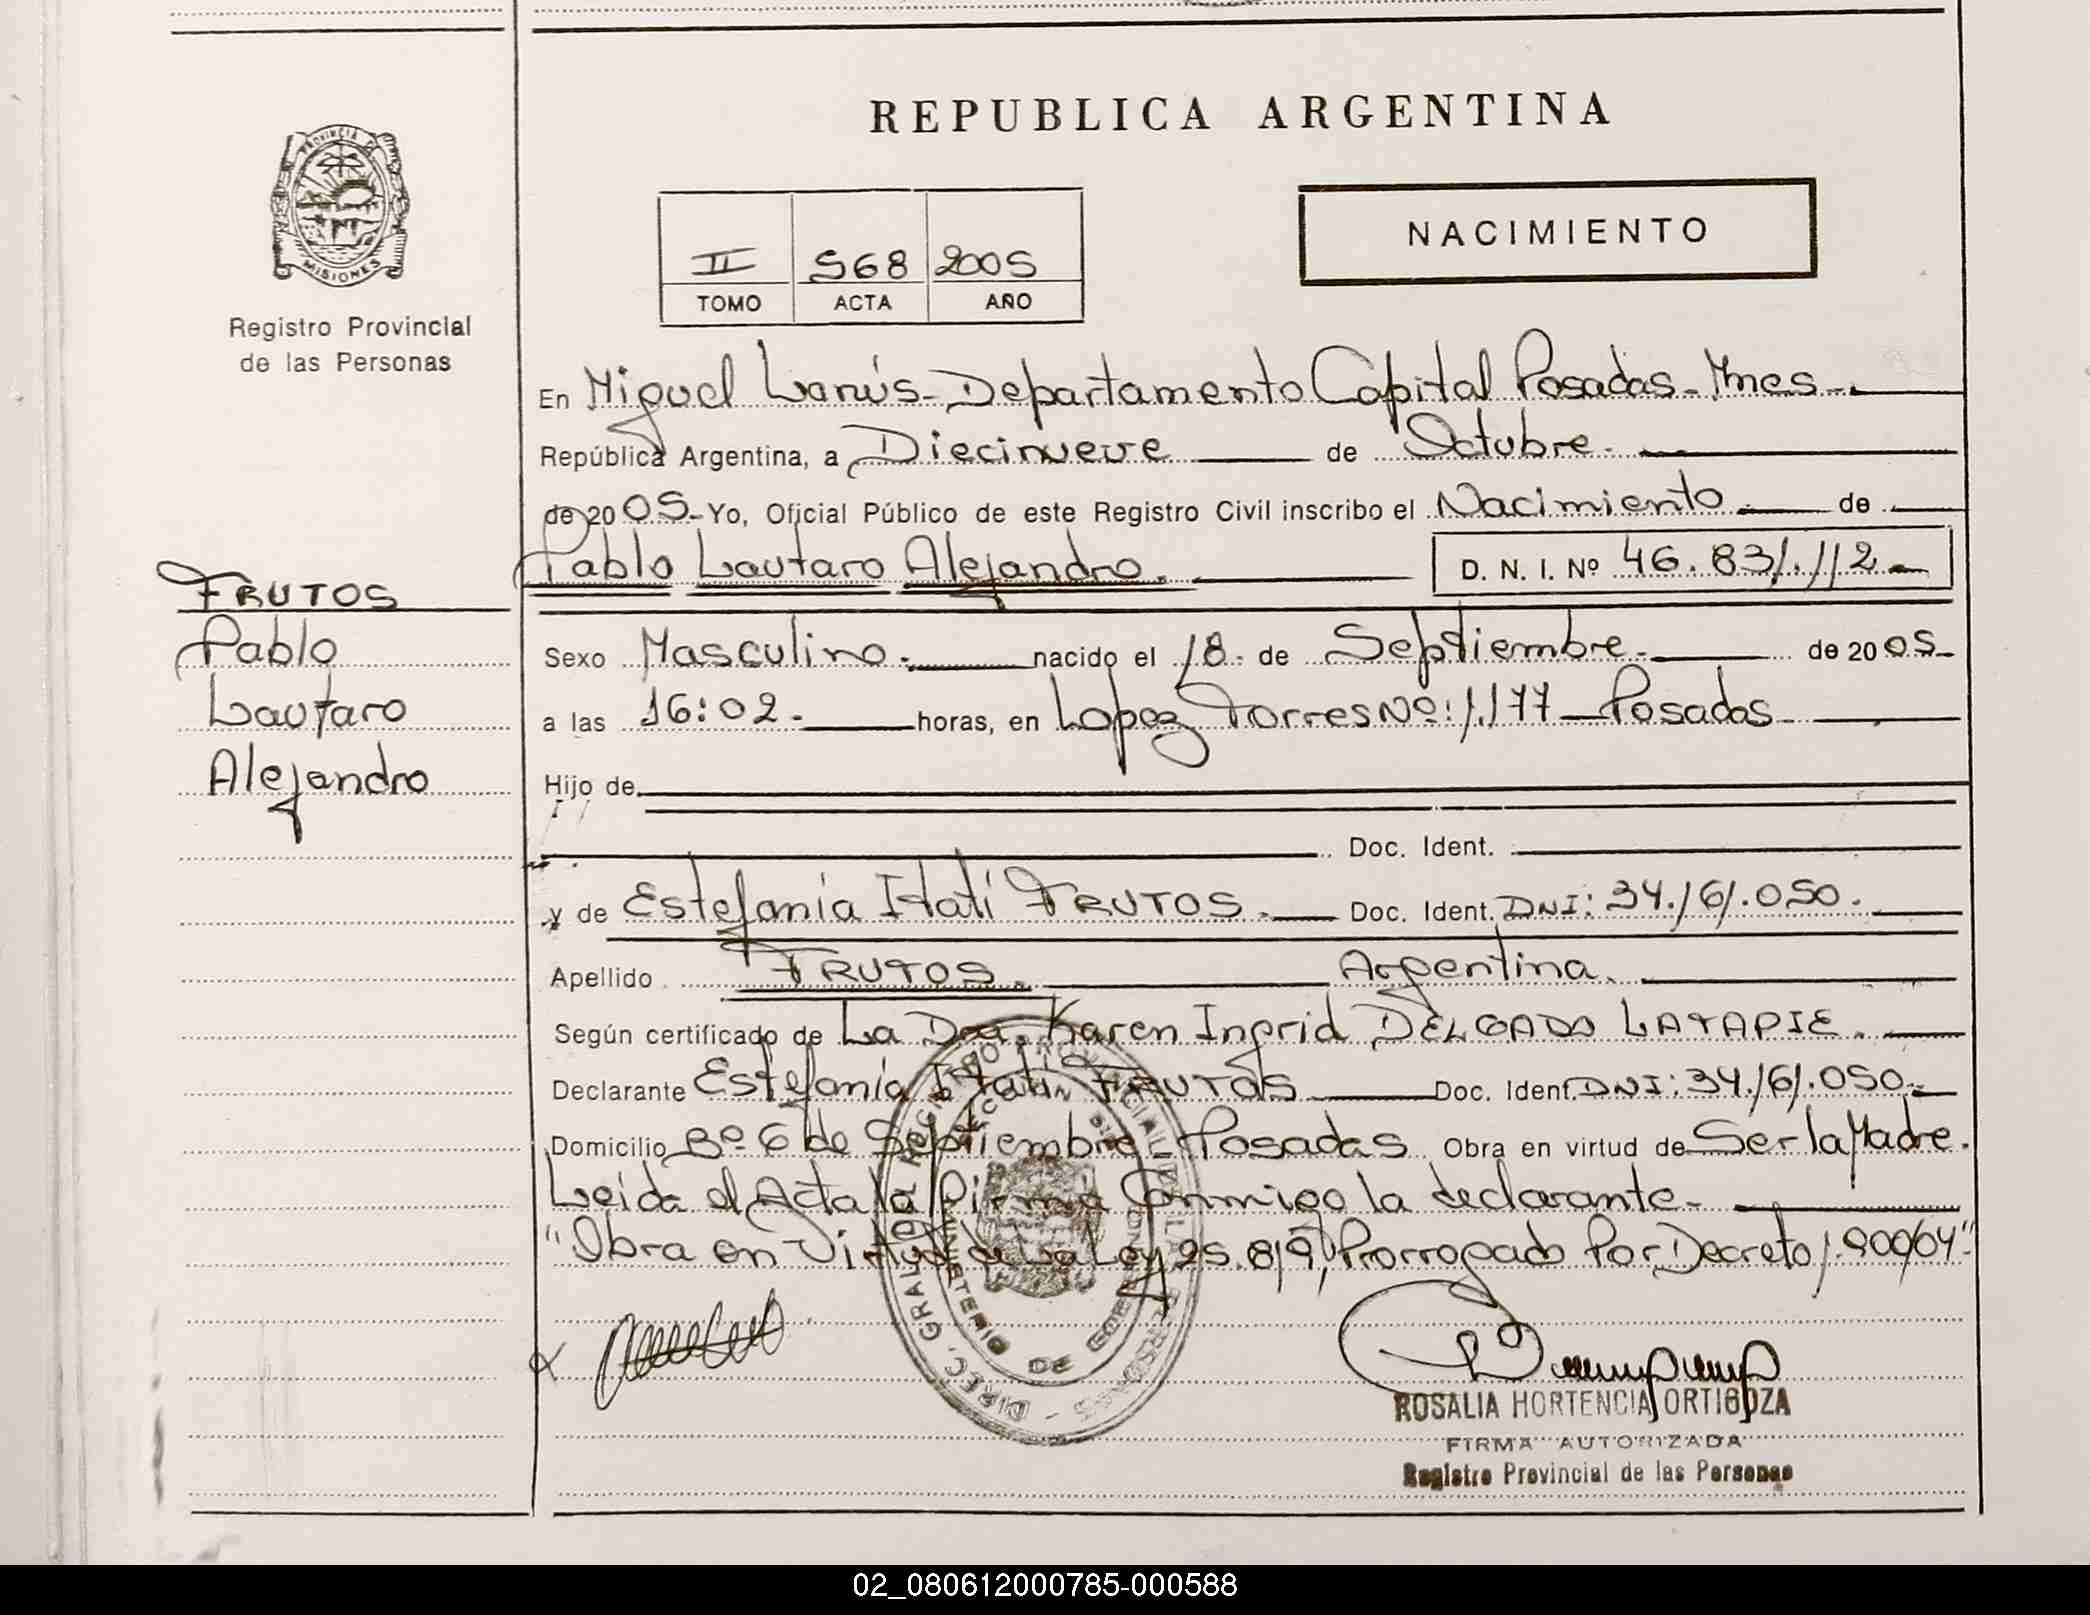 REPUBLICA ARGENTINA
PROVINCIA DE
MISIONES
Registro Provincial
de las Personas
NACIMIENTO
II 568 2005
TOMO ACTA AÑO
En Miguel Lanús - Departamento Capital Posadas - Mnes -.
República Argentina, a Diecinueve de Octubre.
de 2005.- Yo, Oficial Público de este Registro Civil inscribo el Nacimiento.- de
Pablo Lautaro Alejandro. D. N. I. Nº 46.831.112.-
FRUTOS
Pablo
Lautaro
Alejandro
Sexo Masculino.- nacido el 18. de Septiembre.- de 2005.-
a las 16:02.- horas, en Lopez Torres Nº: 1.177 - Posadas.-
Hijo de
Doc. Ident.
y de Estefanía Itatí FRUTOS.- Doc. Ident. DNI: 34.161.050.
Apellido FRUTOS. Argentina.
Según certificado de La Dra. Karen Ingrid DELGADO LATAPIE.
Declarante Estefanía Itatí FRUTOS Doc. Ident. DNI: 34.161.050.-
Domicilio Bº 6 de Septiembre - Posadas Obra en virtud de Ser la Madre.
Leida el Acta la firma Conmigo la declarante.-
"Obra en Virtud de la Ley 25.819, Prorrogado Por Decreto 1.900/04".
ROSALIA HORTENCIA ORTIGOZA
FIRMA AUTORIZADA
Registro Provincial de las Personas
02_080612000785-000588